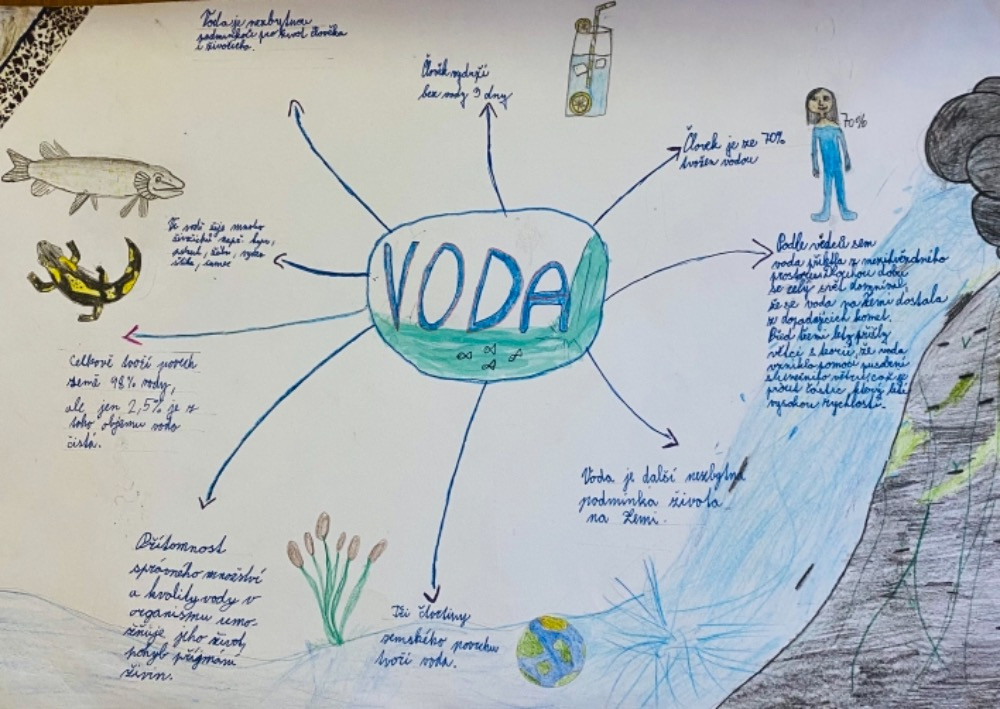 Voda je nezbytnou
podmínkou pro život člověka
i živočicha.
Člověk vydrží
bez vody 9 dny
Člověk je ze 70%
tvořen vodou
70%
VODA
Ve vodě žije mnoho
živočichů např. kapr,
pstruh, žába,
štika, sumec
Podle vědců sem
voda přilétla z mezihvězdného
prostoru. Dlouhou dobu
se celý svět domníval,
že se voda na zemi dostala
z dopadajících komet.
Před třemi lety přišly
vědci s teorií, že voda
vznikla pomocí působení
slunečního větru, což je
proud částic který letí
vysokou rychlostí.
Celkově tvoří povrch
země 98% vody,
ale jen 2,5% je z
toho objemu voda
čistá.
Voda je další nezbytná
podmínka života
na Zemi.
Přítomnost
správného množství
a kvality vody v
organismu umo-
žňuje jeho život,
pohyb přijmání
živin.
Tři čtvrtiny
zemského povrchu
tvoří voda.